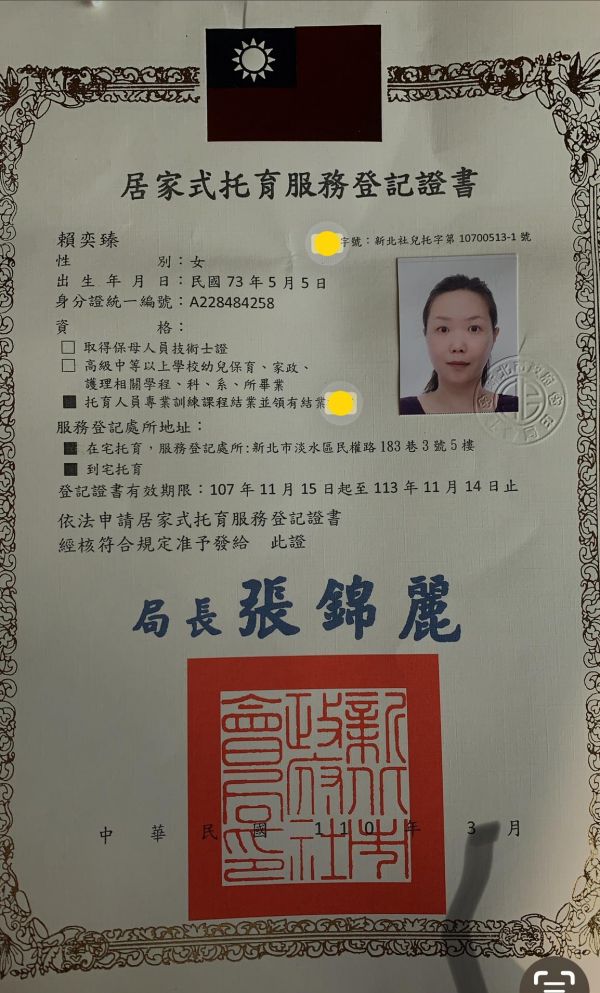 居家式托育服務登記證書
字號：新北社兒托字第 10700513-1 號
賴奕臻
性別：女
出生年月日：民國 73 年 5 月 5 日
身分證統一編號：A228484258
資格：
取得保母人員技術士證
高級中等以上學校幼兒保育、家政、
護理相關學程、科、系、所畢業
托育人員專業訓練課程結業並領有結業
服務登記處所地址：
在宅托育，服務登記處所:新北市淡水區民權路 183 巷 3 號 5 樓
到宅托育
登記證書有效期限：107 年 11 月 15 日起至 113 年 11 月 14 日止
依法申請居家式托育服務登記證書
經核符合規定准予發給 此證
局長 張錦麗
新北市政府社會局印
中華民國 110 年 3 月